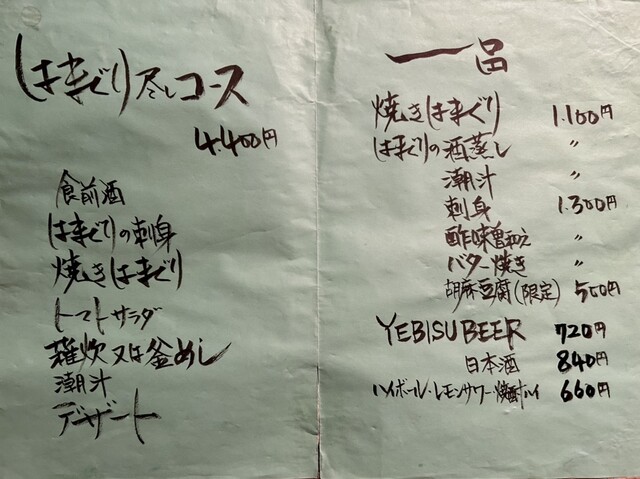 はまぐり尽しコース
4.400円
食前酒
はまぐりの刺身
焼きはまぐり
トマトサラダ
雑炊又は釜めし
潮汁
デザート
一品
焼きはまぐり 1.100円
はまぐりの酒蒸し 〃
潮汁 〃
刺身 1.300円
酢味噌和え 〃
バター焼き 〃
胡麻豆腐(限定) 500円
YEBISU BEER 720円
日本酒 840円
ハイボール・レモンサワー・焼酎ハイ 660円